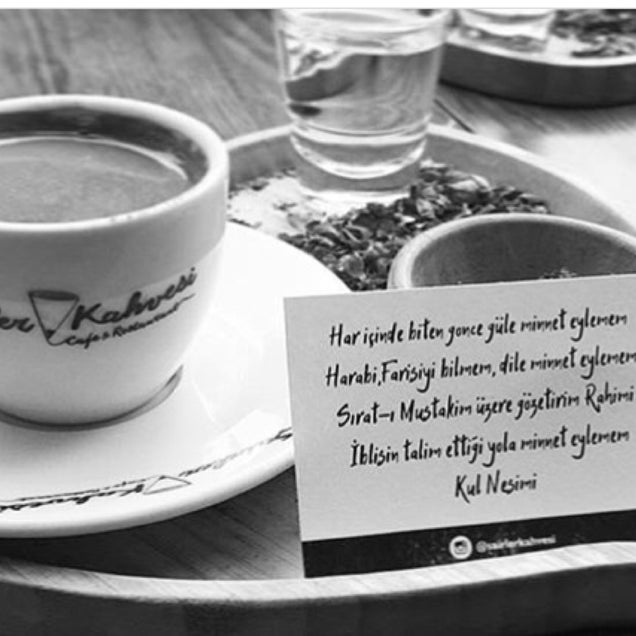 Kahvesi
Cafe & Restaurant
Har içinde biten gonce güle minnet eylemem
Harabi,Farisiyi bilmem, dile minnet eylemem
Sırat-ı Mustakim üzere gözetirim Rahimi
İblisin talim ettiği yola minnet eylemem
Kul Nesimi
@sairlerkahvesi